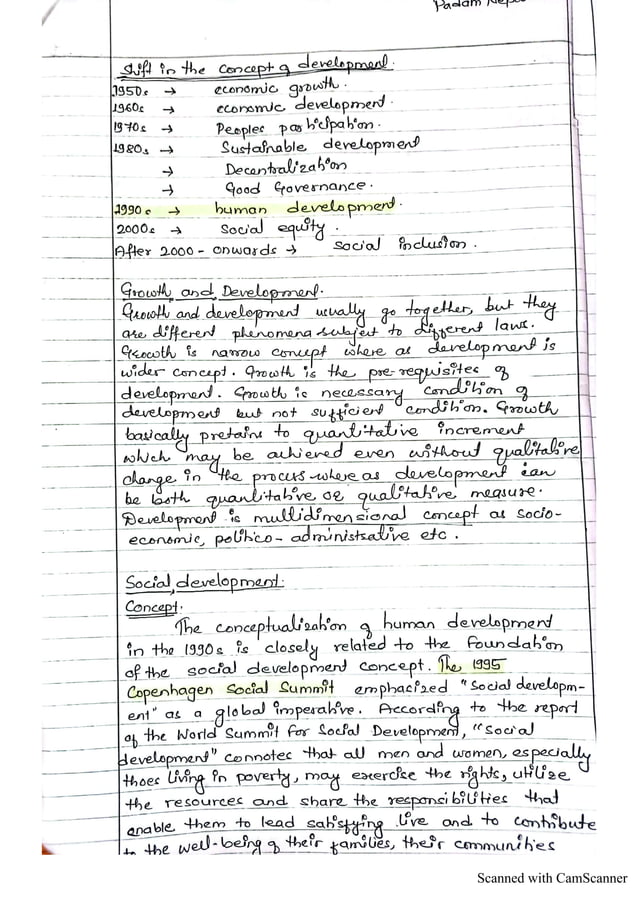 Padam Nepa
Shift in the concept of development.
1950s → economic growth.
1960s → economic development.
1970s → Peoples participation.
1980s → Sustainable development
→ Decentralization
→ Good Governance.
1990s → human development.
2000s → Social equity.
After 2000 - onwards → Social inclusion.
Growth and Development.
Growth and development usually go together, but they
are different phenomena subject to different laws.
Growth is narrow concept where as development is
wider concept. Growth is the pre-requisites of
development. Growth is necessary condition of
development but not sufficient condition. Growth
basically pretains to quantitative increment
which may be achieved even without qualitative
change in the process where as development can
be both quantitative or qualitative measure.
Development is multidimensional concept as socio-
economic, politico-administrative etc.
Social development:
Concept.
The conceptualization of human development
in the 1990s is closely related to the foundation
of the social development concept. The 1995
Copenhagen Social Summit emphasized "Social developm-
ent" as a global imperative. According to the report
of the World Summit for Social Development, "social
development" connotes that all men and women, especially
thoes living in poverty, may exercise the rights, utilize
the resources and share the responsibilities that
enable them to lead satisfying live and to contribute
to the well-being of their families, their communities
Scanned with CamScanner